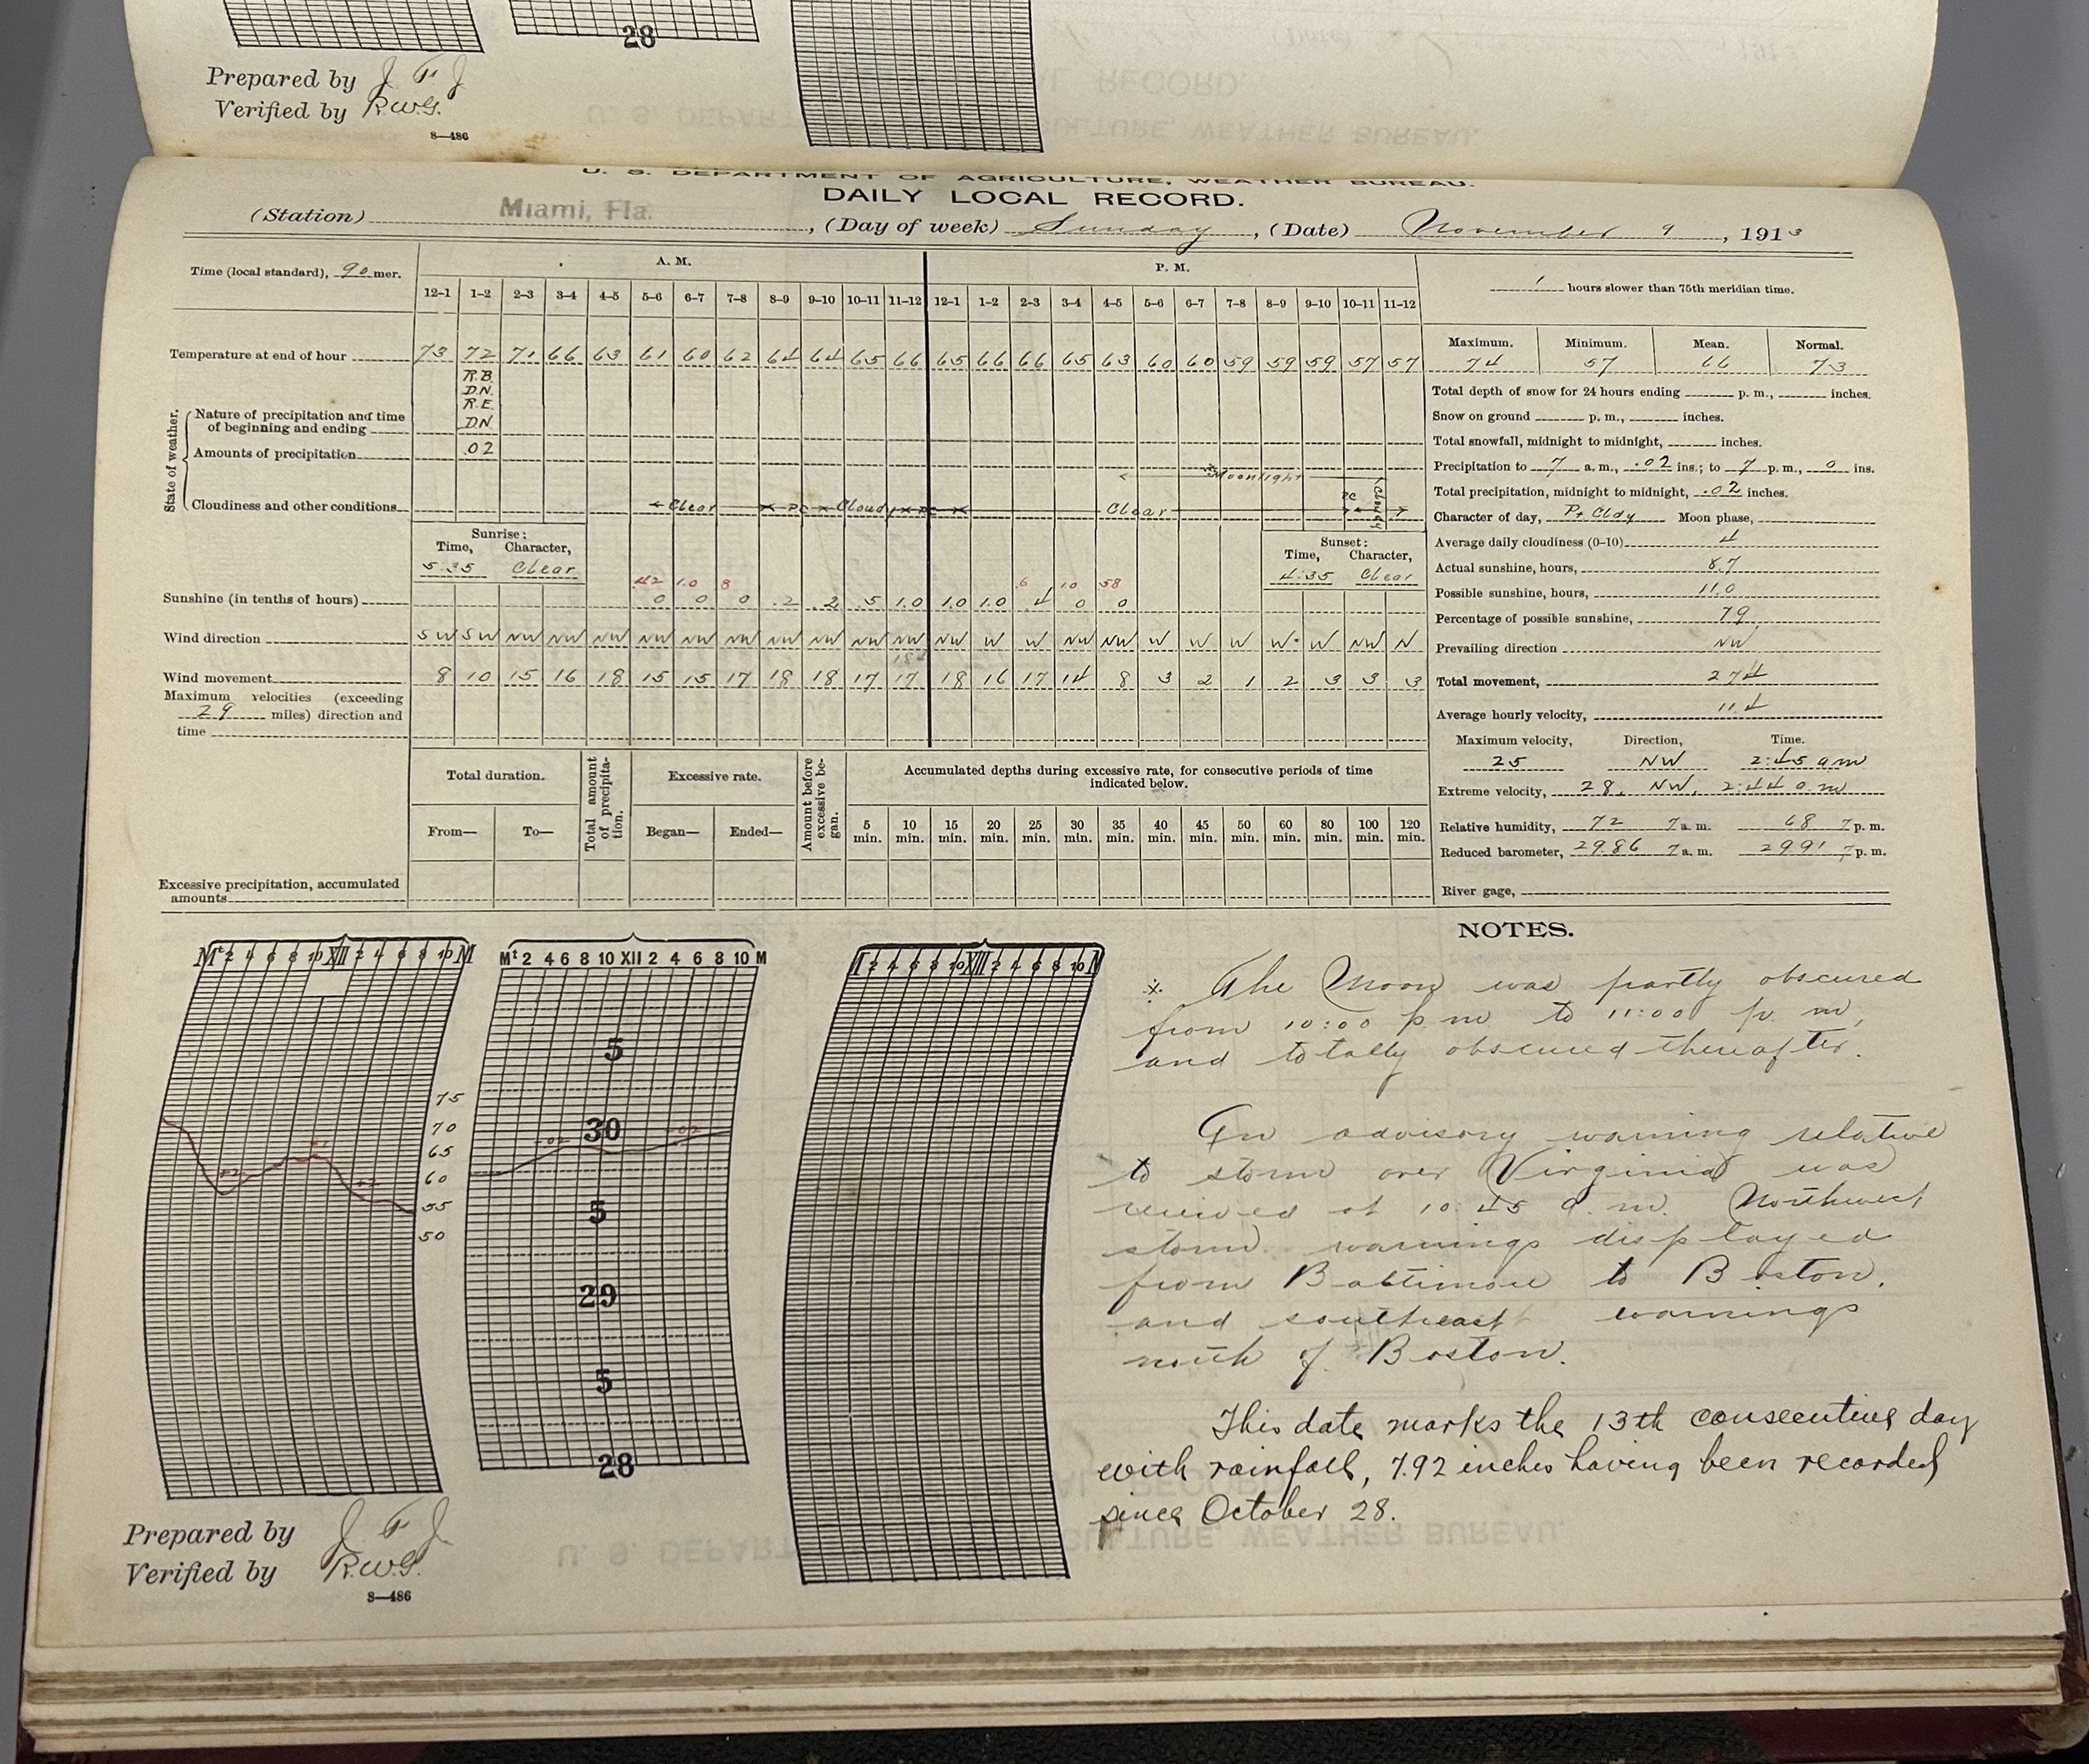 28
Prepared by J F J
Verified by R.W.G.
8—486
U. S. DEPARTMENT OF AGRICULTURE, WEATHER BUREAU.
DAILY LOCAL RECORD.
(Station) Miami, Fla. , (Day of week) Sunday , (Date) November 9 , 1913
Time (local standard), 90 mer. A. M. P. M. 1 hours slower than 75th meridian time.
12–1 1–2 2–3 3–4 4–5 5–6 6–7 7–8 8–9 9–10 10–11 11–12 12–1 1–2 2–3 3–4 4–5 5–6 6–7 7–8 8–9 9–10 10–11 11–12
Temperature at end of hour 73 72 71 66 63 61 60 62 64 64 65 66 65 66 66 65 63 60 60 59 59 59 57 57
Maximum. Minimum. Mean. Normal.
74 57 66 73
State of weather.
Nature of precipitation and time of beginning and ending
R.B.
D.N.
R.E.
DN.
Amounts of precipitation .02
※Moonlight
Cloudiness and other conditions Clear PC Cloudy PC Clear PC Cloudy
Total depth of snow for 24 hours ending p. m., inches.
Snow on ground p. m., inches.
Total snowfall, midnight to midnight, inches.
Precipitation to 7 a. m., .02 ins.; to 7 p. m., 0 ins.
Total precipitation, midnight to midnight, .02 inches.
Character of day, Pt Cldy Moon phase,
Average daily cloudiness (0–10) 4
Actual sunshine, hours, 8.7
Possible sunshine, hours, 11.0
Percentage of possible sunshine, 79
Prevailing direction NW
Total movement, 274
Average hourly velocity, 11.4
Sunrise: Time, Character,
5.35 Clear
Sunset: Time, Character,
4:35 Clear
42 1.0 8 6 10 58
Sunshine (in tenths of hours) 0 0 0 .2 .2 .5 1.0 1.0 1.0 4 0 0
Wind direction SW SW NW NW NW NW NW NW NW NW NW NW NW W W NW NW W W W W W NW N
Wind movement 8 10 15 16 18 15 15 17 18 18 17 17 18 16 17 14 8 3 2 1 2 3 3 3
Maximum velocities (exceeding
29 miles) direction and
time
Maximum velocity, Direction, Time.
25 NW 2:45 am
Extreme velocity, 28, NW, 2:44 a m
Relative humidity, 72 7 a. m. 68 7 p. m.
Reduced barometer, 29.86 7 a. m. 29.91 7 p. m.
River gage,
Total duration. Total amount of precipitation. Excessive rate. Amount before excessive began. Accumulated depths during excessive rate, for consecutive periods of time indicated below.
From— To— Began— Ended— 5 min. 10 min. 15 min. 20 min. 25 min. 30 min. 35 min. 40 min. 45 min. 50 min. 60 min. 80 min. 100 min. 120 min.
Excessive precipitation, accumulated
amounts
Mt 2 4 6 8 10 XII 2 4 6 8 10 M
75
70
65
60
55
50
Mt 2 4 6 8 10 XII 2 4 6 8 10 M
5
30
5
29
5
28
NOTES.
※ The Moon was partly obscured
from 10:00 p. m. to 11:00 p. m,
and totally obscured thereafter.
An advisory warning relative
to storm over Virginia was
received at 10:45 a. m. Northwest
storm warnings displayed
from Baltimore to Boston,
and southeast warnings
north of Boston.
This date marks the 13th consecutive day
with rainfall, 7.92 inches having been recorded
since October 28.
Prepared by J F J
Verified by R.W.G.
8—486